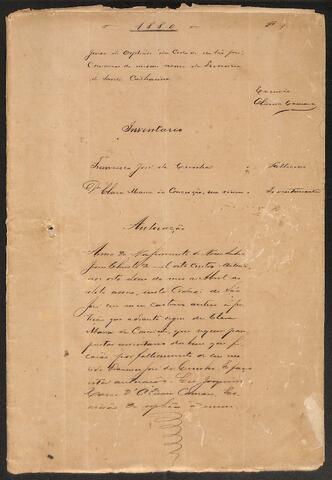 1880
Juizo de Orphãos da Cidade de São José
Comarca do mesmo nome da Provincia
de Santa Catharina
Escrivão
Inventario
Francisco José da Cunha Fallecido
D. Clara Maria da Conceição, sua viuva Inventariante
Autuação
Anno do Nascimento de Nosso Senhor
Jesus Christo de mil oito centos oitenta
aos oito dias do mes de Abril do
dito anno, nesta Cidade de São
José em meu cartorio autuo a pe-
tição que adiante segue de Clara
Maria da Conceição, que requer para
inventario dos bens que fi-
carão por fallecimento de seu ma-
rido Francisco José da Cunha. E faço
esta autuação. Eu Joaquim
Es-
crivão de orphãos o escrevi